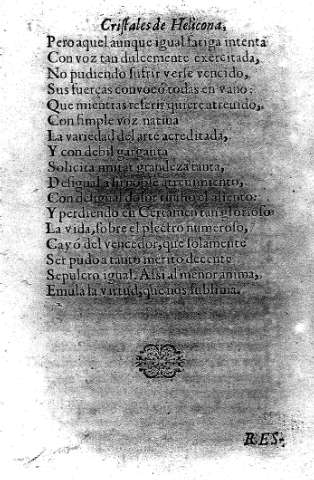 Cristales de Helicona,
Pero aquel aunque igual fatiga intenta
Con voz tan dulcemente exercitada,
No pudiendo sufrir verse vencido,
Sus fuerças convocó todas en vano:
Que mientras referir quiere atrevido,
Con simple voz nativa
La variedad del arte acreditada,
Y con debil garganta
Solicita imitar grandeza tanta,
Desigual a su noble atrevimiento,
Con desigual dolor el aliento:
Y perdiendo en Certamen tan glorioso
La vida, sobre el plectro numeroso,
Cayó del vencedor, que solamente
Ser pudo a tanto merito decente
Sepulcro igual. Assi al menor anima,
Emula la virtud, que nos sublima.
RES-